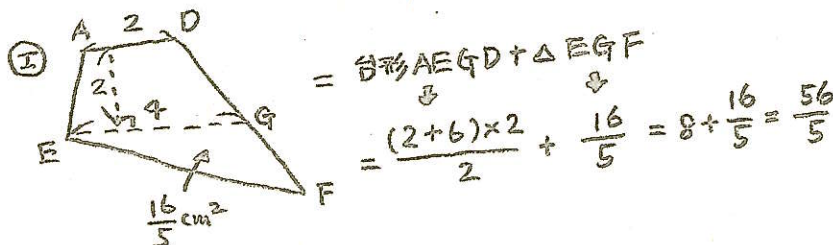 Ⓘ
A 2 D
2
4
E G
F
16/5 cm²
= 台形AEGD + △EGF
⇩ ⇩
= (2+6)×2/2 + 16/5 = 8 + 16/5 = 56/5